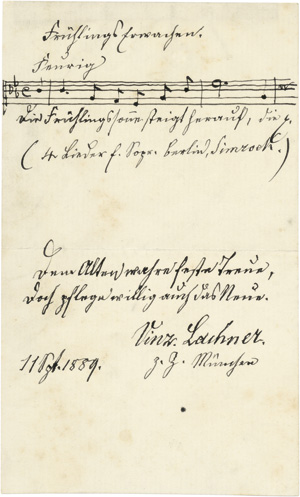 Frühlings Erwachen.
Feurig
Die Frühlingssonne steigt herauf, die p.
(4 Lieder f. Sopr. Berlin, Simrock.)
Dem Alten wahre feste Treue,
Doch pflege willig auch das Neue.
Vinz. Lachner.
11 Spt. 1889.
z. Z. München